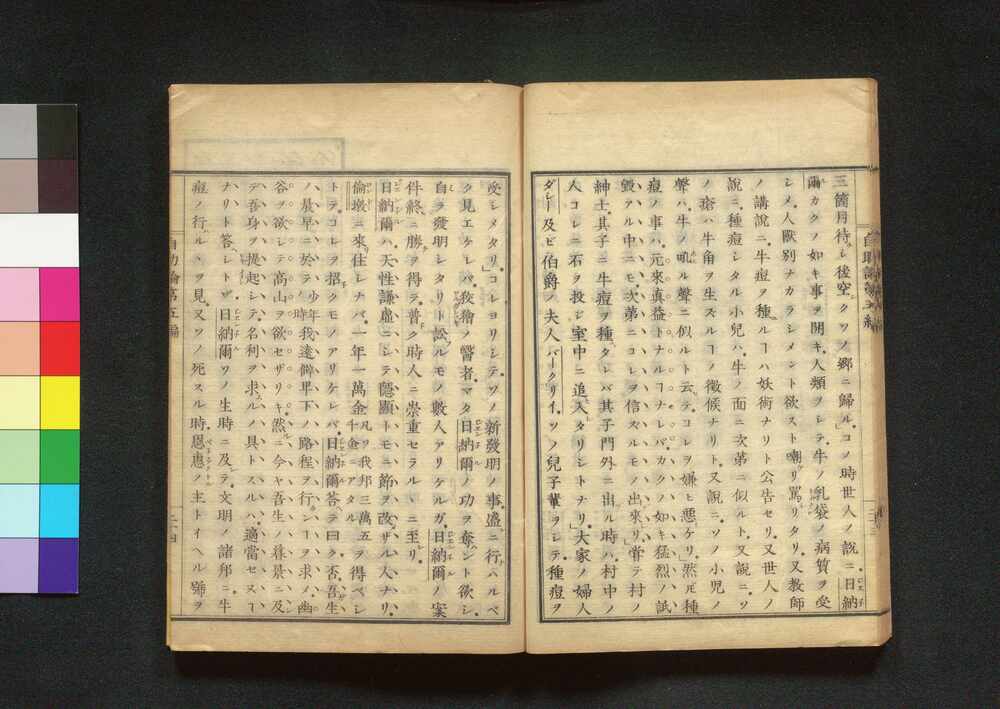 三箇月待シ後空クソノ郷ニ歸ル」コノ時世人ノ説ニ日納
爾カクノ如キ事ヲ開キ人類ヲシテ牛ノ乳袋ノ病質ヲ受
シメ人獸別ナカラシメント欲スト嘲リ罵リタリ又教師
ノ講説ニ牛痘ヲ種ルヿハ妖術ナリト公告セリ又世人ノ
説ニ種痘シタル小兒ハ牛ノ面ニ次第ニ似ルト又説ニソ
ノ瘡ハ牛角ヲ生ズルヿノ徴候ナリト又説ニソノ小兒ノ
聲ハ牛ノ吼ル聲ニ似ルト云テコレヲ嫌ヒ悪ケリ」然𪜈種
痘ノ事ハ元來真益トナルヿナレバカクノ如キ猛烈ノ試
毀アル中ニモ次第ニコレヲ信ズルモノ出來リ」嘗テ村ノ
紳士其子ニ牛痘ヲ種タレバ其子門外ニ出ル時ハ村中ノ
人コレニ石ヲ投ジ室中ニ追入タリシトナリ」大家ノ婦人
ダシー及ビ伯爵ノ夫人バークリイソノ兒子輩ヲシテ種痘ヲ
自助論第五編
受シメタリ」コレヨリシテソノ新發明ノ事盛ニ行ハルベ
ク見エケレバ狡獪ノ醫者マタ日納爾ノ功ヲ奪ント欲シ
自ラ發明シタリト訟ルモノ數人アリケルガ日納爾ノ案
件終ニ勝ヲ得テ普ク時人ニ崇重セラルヽニ至リ
日納爾ハ天性謙虚ニシテ隠顯トモニ節ヲ改ザル人ナリ
倫墩ニ來往シナバ一年一萬金凡ソ我邦三萬五千金ニアタルヲ得ベシ
トテコレヲ招クモノアリケレバ日納爾答テ曰ク否吾生
ハ最早ニ於テ少年ノ時我遠僻卑下ノ路程ヲ行ンヿヲ求メ幽
谷ヲ欲シテ高山ヲ欲セザリキ然ニ今ヤ吾生ノ暮景ニ及
デ吾身ヲ提起シテ名利ヲ求ルノ具トスルハ適當セヌヿ
ナリト答シトゾ日納爾ソノ生時ニ及テ文明ノ諸邦ニ牛
痘ノ行ルヽヲ見又ソノ死スル時恩惠ノ主トイヘル號ヲ
自助論第五編
二十四